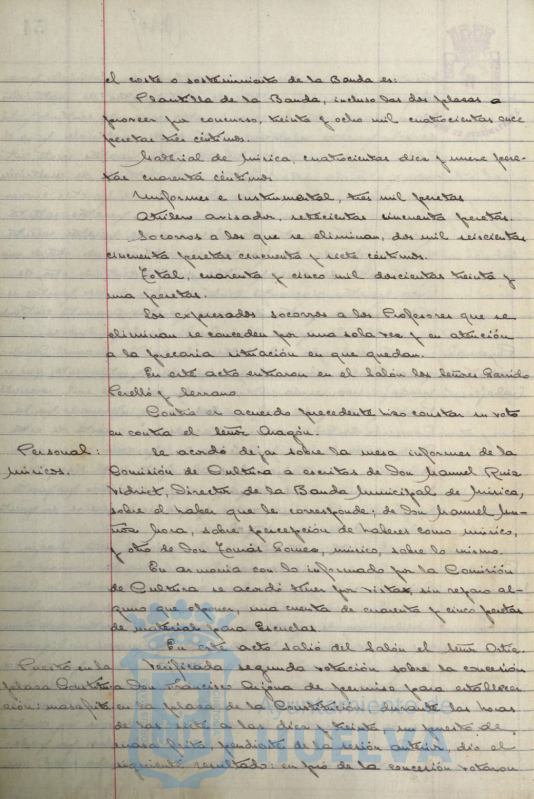 el coste o sostenimiento de la Banda es:
Plantilla de la Banda, incluso las dos plazas a
proveer por concurso, treinta y ocho mil cuatrocientas once
pesetas tres céntimos.
Material de música, cuatrocientas diez y nueve pese-
tas cuarenta céntimos
Uniformes e instrumental, tres mil pesetas
Atrilero avisador, setecientas cincuenta pesetas.
Socorros a los que se eliminan, dos mil seiscientas
cincuenta pesetas cincuenta y siete céntimos.
Total, cuarenta y cinco mil doscientas treinta y
una pesetas.
Los expresados socorros a los Profesores que se
eliminan se conceden por una sola vez y en atención
a la precaria situación en que quedan.
En este acto entraron en el Salón los Señores Garrido
Perelló y Serrano
Contra el acuerdo precedente hizo constar su voto
en contra el Señor Aragón.
Personal:
músicos.
Se acordó dejar sobre la mesa informes de la
Comisión de Cultura a escritos de Don Manuel Ruiz
Vidriet, Director de la Banda Municipal de Música,
sobre el haber que le corresponde; de Don Manuel Mu-
ñoz Mora, sobre percepción de haberes como músico,
y otro de Don Tomás Gomez, músico, sobre lo mismo.
En armonía con lo informado por la Comisión
de Cultura se acordó tener por vista, sin reparo al-
guno que oponer, una cuenta de cuarenta y cinco pesetas
de material para Escuelas.
En este acto salió del Salón el Señor Ortiz.
Puesto en la
plaza Constitu-
ción: masa frita
Verificada segunda votación sobre la concesión
a Don Francisco Arjona de permiso para establecer
en la plaza de la Constitución, durante las horas
de las siete a las diez y treinta, un puesto de
masa frita, pendiente de la sesión anterior, dió el
siguiente resultado: en pró de la concesión votaron
Ayuntamiento de
HUELVA